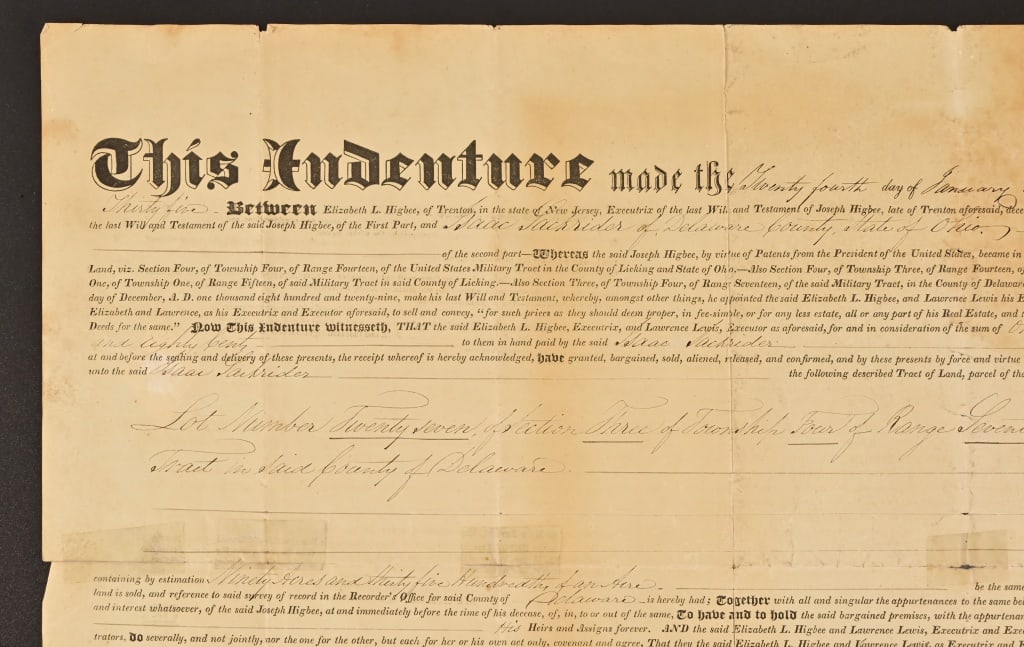 This Indenture made the Twenty fourth day of January
Thirty five Between Elizabeth L. Higbee, of Trenton, in the state of New Jersey, Executrix of the last Will and Testament of Joseph Higbee, late of Trenton aforesaid, dece
the last Will and Testament of the said Joseph Higbee, of the First Part, and Isaac Sackrider of Delaware County, State of Ohio.
of the second part—Whereas the said Joseph Higbee, by virtue of Patents from the President of the United States, became in
Land, viz. Section Four, of Township Four, of Range Fourteen, of the United States Military Tract in the County of Licking and State of Ohio.—Also Section Four, of Township Three, of Range Fourteen, o
One, of Township One, of Range Fifteen, of said Military Tract in said County of Licking.—Also Section Three, of Township Four, of Range Seventeen, of the said Military Tract, in the County of Delawar
day of December, A. D. one thousand eight hundred and twenty-nine, make his last Will and Testament, whereby, amongst other things, he appointed the said Elizabeth L. Higbee, and Lawrence Lewis his E
Elizabeth and Lawrence, as his Executrix and Executor aforesaid, to sell and convey, "for such prices as they should deem proper, in fee-simple, or for any less estate, all or any part of his Real Estate, and t
Deeds for the same." Now This Indenture witnesseth, THAT the said Elizabeth L. Higbee, Executrix, and Lawrence Lewis, Executor as aforesaid, for and in consideration of the sum of
and eighty to them in hand paid by the said Isaac Sackrider
at and before the sealing and delivery of these presents, the receipt whereof is hereby acknowledged, have granted, bargained, sold, aliened, released, and confirmed, and by these presents by force and virtue
unto the said Isaac Sackrider the following described Tract of Land, parcel of the
Lot Number Twenty seven, of Section Three of Township Four of Range Sevent
Tract in said County of Delaware.
containing by estimation Ninety Acres and thirty five Hundredths of an Acre be the same
land is sold, and reference to said survey of record in the Recorder's Office for said County of Delaware is hereby had; Together with all and singular the appurtenances to the same be
and interest whatsoever, of the said Joseph Higbee, at and immediately before the time of his decease, of, in, to or out of the same, To have and to hold the said bargained premises, with the appurtenan
His Heirs and Assigns forever. AND the said Elizabeth L. Higbee and Lawrence Lewis, Executrix and Exec
trators, do severally, and not jointly, nor the one for the other, but each for her or his own act only, covenant and agree, That they the said Elizabeth L. Higbee and Lawrence Lewis, as Executrix and